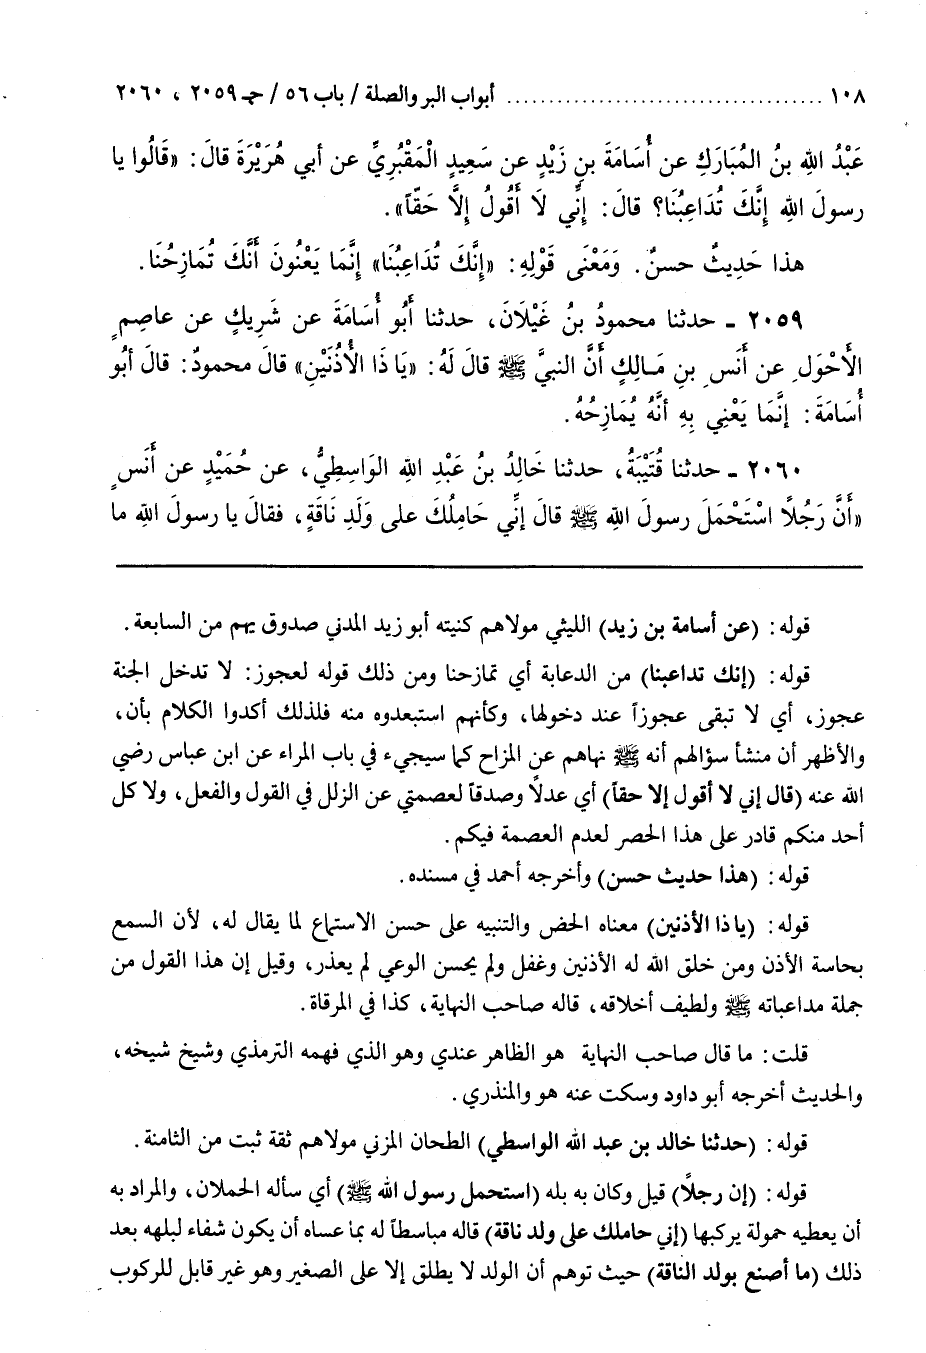 ١٠٨ ...................................... أبواب البر والصلة / باب ٥٦ / حـ ٢٠٥٩ ، ٢٠٦٠
عَبْدُ اللهِ بنُ المُبَارَكِ عن أُسَامَةَ بنِ زَيْدٍ عن سَعِيدٍ الْمَقْبُرِيِّ عن أبي هُرَيْرَةَ قالَ: «قَالُوا يا
رسولَ اللهِ إنَّكَ تُدَاعِبُنَا؟ قالَ: إِنِّي لَا أَقُولُ إلَّا حَقّاً».
هذا حَدِيثٌ حسنٌ. وَمَعْنَى قَوْلِهِ: «إِنَّكَ تُدَاعِبُنَا» إنَّمَا يَعْنُونَ أَنَّكَ تُمَازِحُنَا.
٢٠٥٩ ـ حدثنا محمودُ بنُ غَيْلَانَ، حدثنا أَبُو أُسَامَةَ عن شَرِيكٍ عن عاصِمٍ
الْأَحْوَلِ عن أَنَسِ بنِ مَالِكٍ أَنَّ النبيَّ ﷺ قالَ لَهُ: «يَا ذَا الْأُذُنَيْنِ» قالَ محمودٌ: قالَ أبُو
أُسَامَةَ: إنَّمَا يَعْنِي بِهِ أنَّهُ يُمَازِحُهُ.
٢٠٦٠ ـ حدثنا قُتَيْبَةُ، حدثنا خَالِدُ بنُ عَبْدِ اللهِ الوَاسِطِيُّ، عن حُمَيْدٍ عن أَنَسٍ
«أَنَّ رَجُلًا اسْتَحْمَلَ رسولَ اللهِ ﷺ قالَ إنِّي حَامِلُكَ على وَلَدِ نَاقَةٍ، فقالَ يا رسولَ اللهِ ما
قوله: (عن أسامة بن زيد) الليثي مولاهم كنيته أبو زيد المدني صدوق يهم من السابعة.
قوله: (إنك تداعبنا) من الدعابة أي تمازحنا ومن ذلك قوله لعجوز: لا تدخل الجنة
عجوز، أي لا تبقى عجوزاً عند دخولها، وكأنهم استبعدوه منه فلذلك أكدوا الكلام بأن،
والأظهر أن منشأ سؤالهم أنه ﷺ نهاهم عن المزاح كما سيجيء في باب المراء عن ابن عباس رضي
الله عنه (قال إني لا أقول إلا حقاً) أي عدلاً وصدقاً لعصمتي عن الزلل في القول والفعل، ولا كل
أحد منكم قادر على هذا الحصر لعدم العصمة فيكم.
قوله: (هذا حديث حسن) وأخرجه أحمد في مسنده.
قوله: (يا ذا الأذنين) معناه الحض والتنبيه على حسن الاستماع لما يقال له، لأن السمع
بحاسة الأذن ومن خلق الله له الأذنين وغفل ولم يحسن الوعي لم يعذر، وقيل إن هذا القول من
جملة مداعباته ﷺ ولطيف أخلاقه، قاله صاحب النهاية، كذا في المرقاة.
قلت: ما قال صاحب النهاية هو الظاهر عندي وهو الذي فهمه الترمذي وشيخ شيخه،
والحديث أخرجه أبو داود وسكت عنه هو والمنذري.
قوله: (حدثنا خالد بن عبد الله الواسطي) الطحان المزني مولاهم ثقة ثبت من الثامنة.
قوله: (إن رجلًا) قيل وكان به بله (استحمل رسول الله ﷺ) أي سأله الحملان، والمراد به
أن يعطيه حمولة يركبها (إني حاملك على ولد ناقة) قاله مباسطاً له بما عساه أن يكون شفاء لبلهه بعد
ذلك (ما أصنع بولد الناقة) حيث توهم أن الولد لا يطلق إلا على الصغير وهو غير قابل للركوب